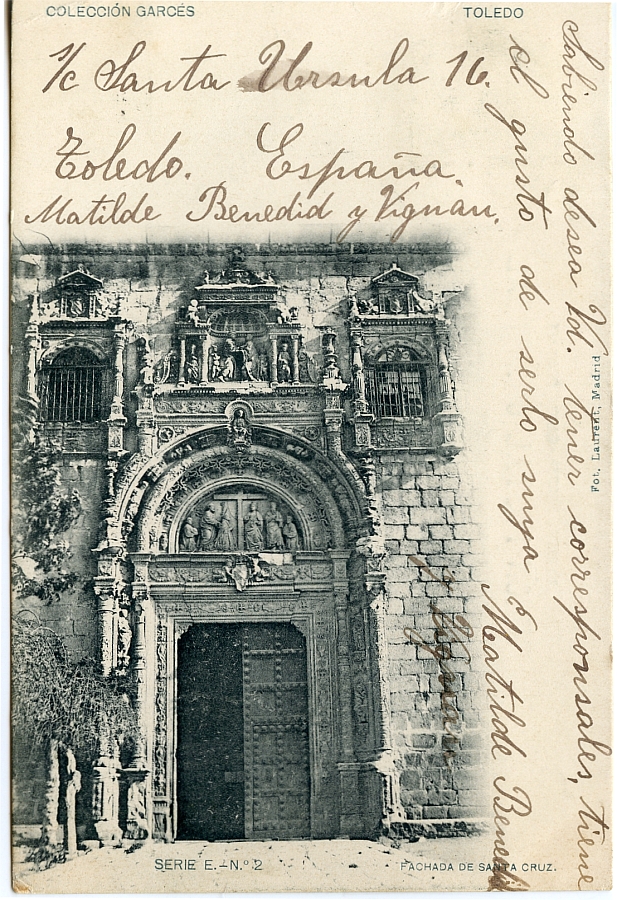 COLECCIÓN GARCÉS
TOLEDO
s/c Santa Ursula 16.
Toledo. España.
Matilde Benedid y Vignau.
Sabiendo desea Vd. tener corresponsales, tiene
el gusto de serlo suya Matilde Benedid
y Vignau.
Fot. Laurent, Madrid
SERIE E.-N.º 2
FACHADA DE SANTA CRUZ.